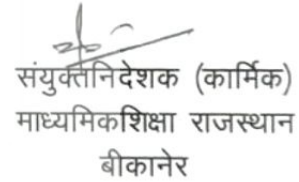 संयुक्तनिदेशक (कार्मिक)
माध्यमिकशिक्षा राजस्थान
बीकानेर